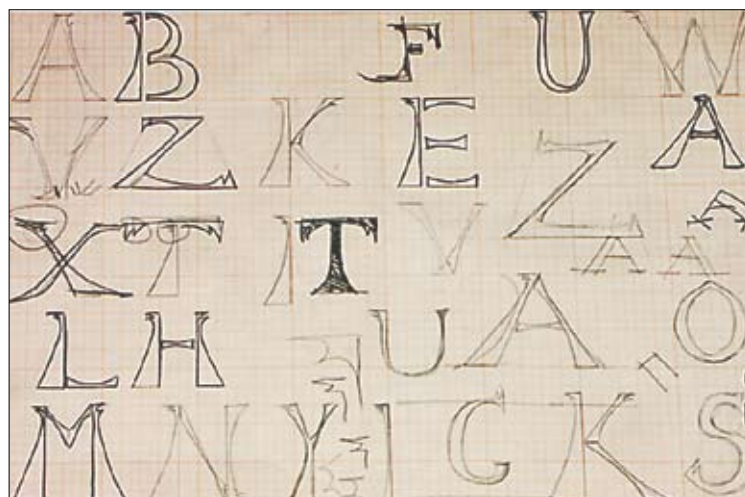 A B F U W
V Z K E Z A
X T I T V A A
L H U A O
n
M N Y I G K S